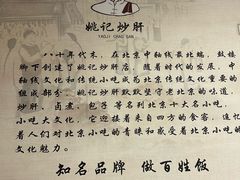 姚记炒肝
YAOJI CHAO GAN
八十年代末，在北京中轴线最北端，鼓楼
脚下创建了姚记炒肝店。随着时代的发展，中
轴线文化和传统小吃成为北京传统文化重要的
组成部分。姚记炒肝默默坚守老北京的味道，
炒肝、卤煮、包子等名列北京十大名小吃，
小吃大文化，它迎接着来自四方的食客，连忆
着人们对北京小吃的青睐和感受着北京小吃的
文化魅力。
知名品牌 做百姓饭